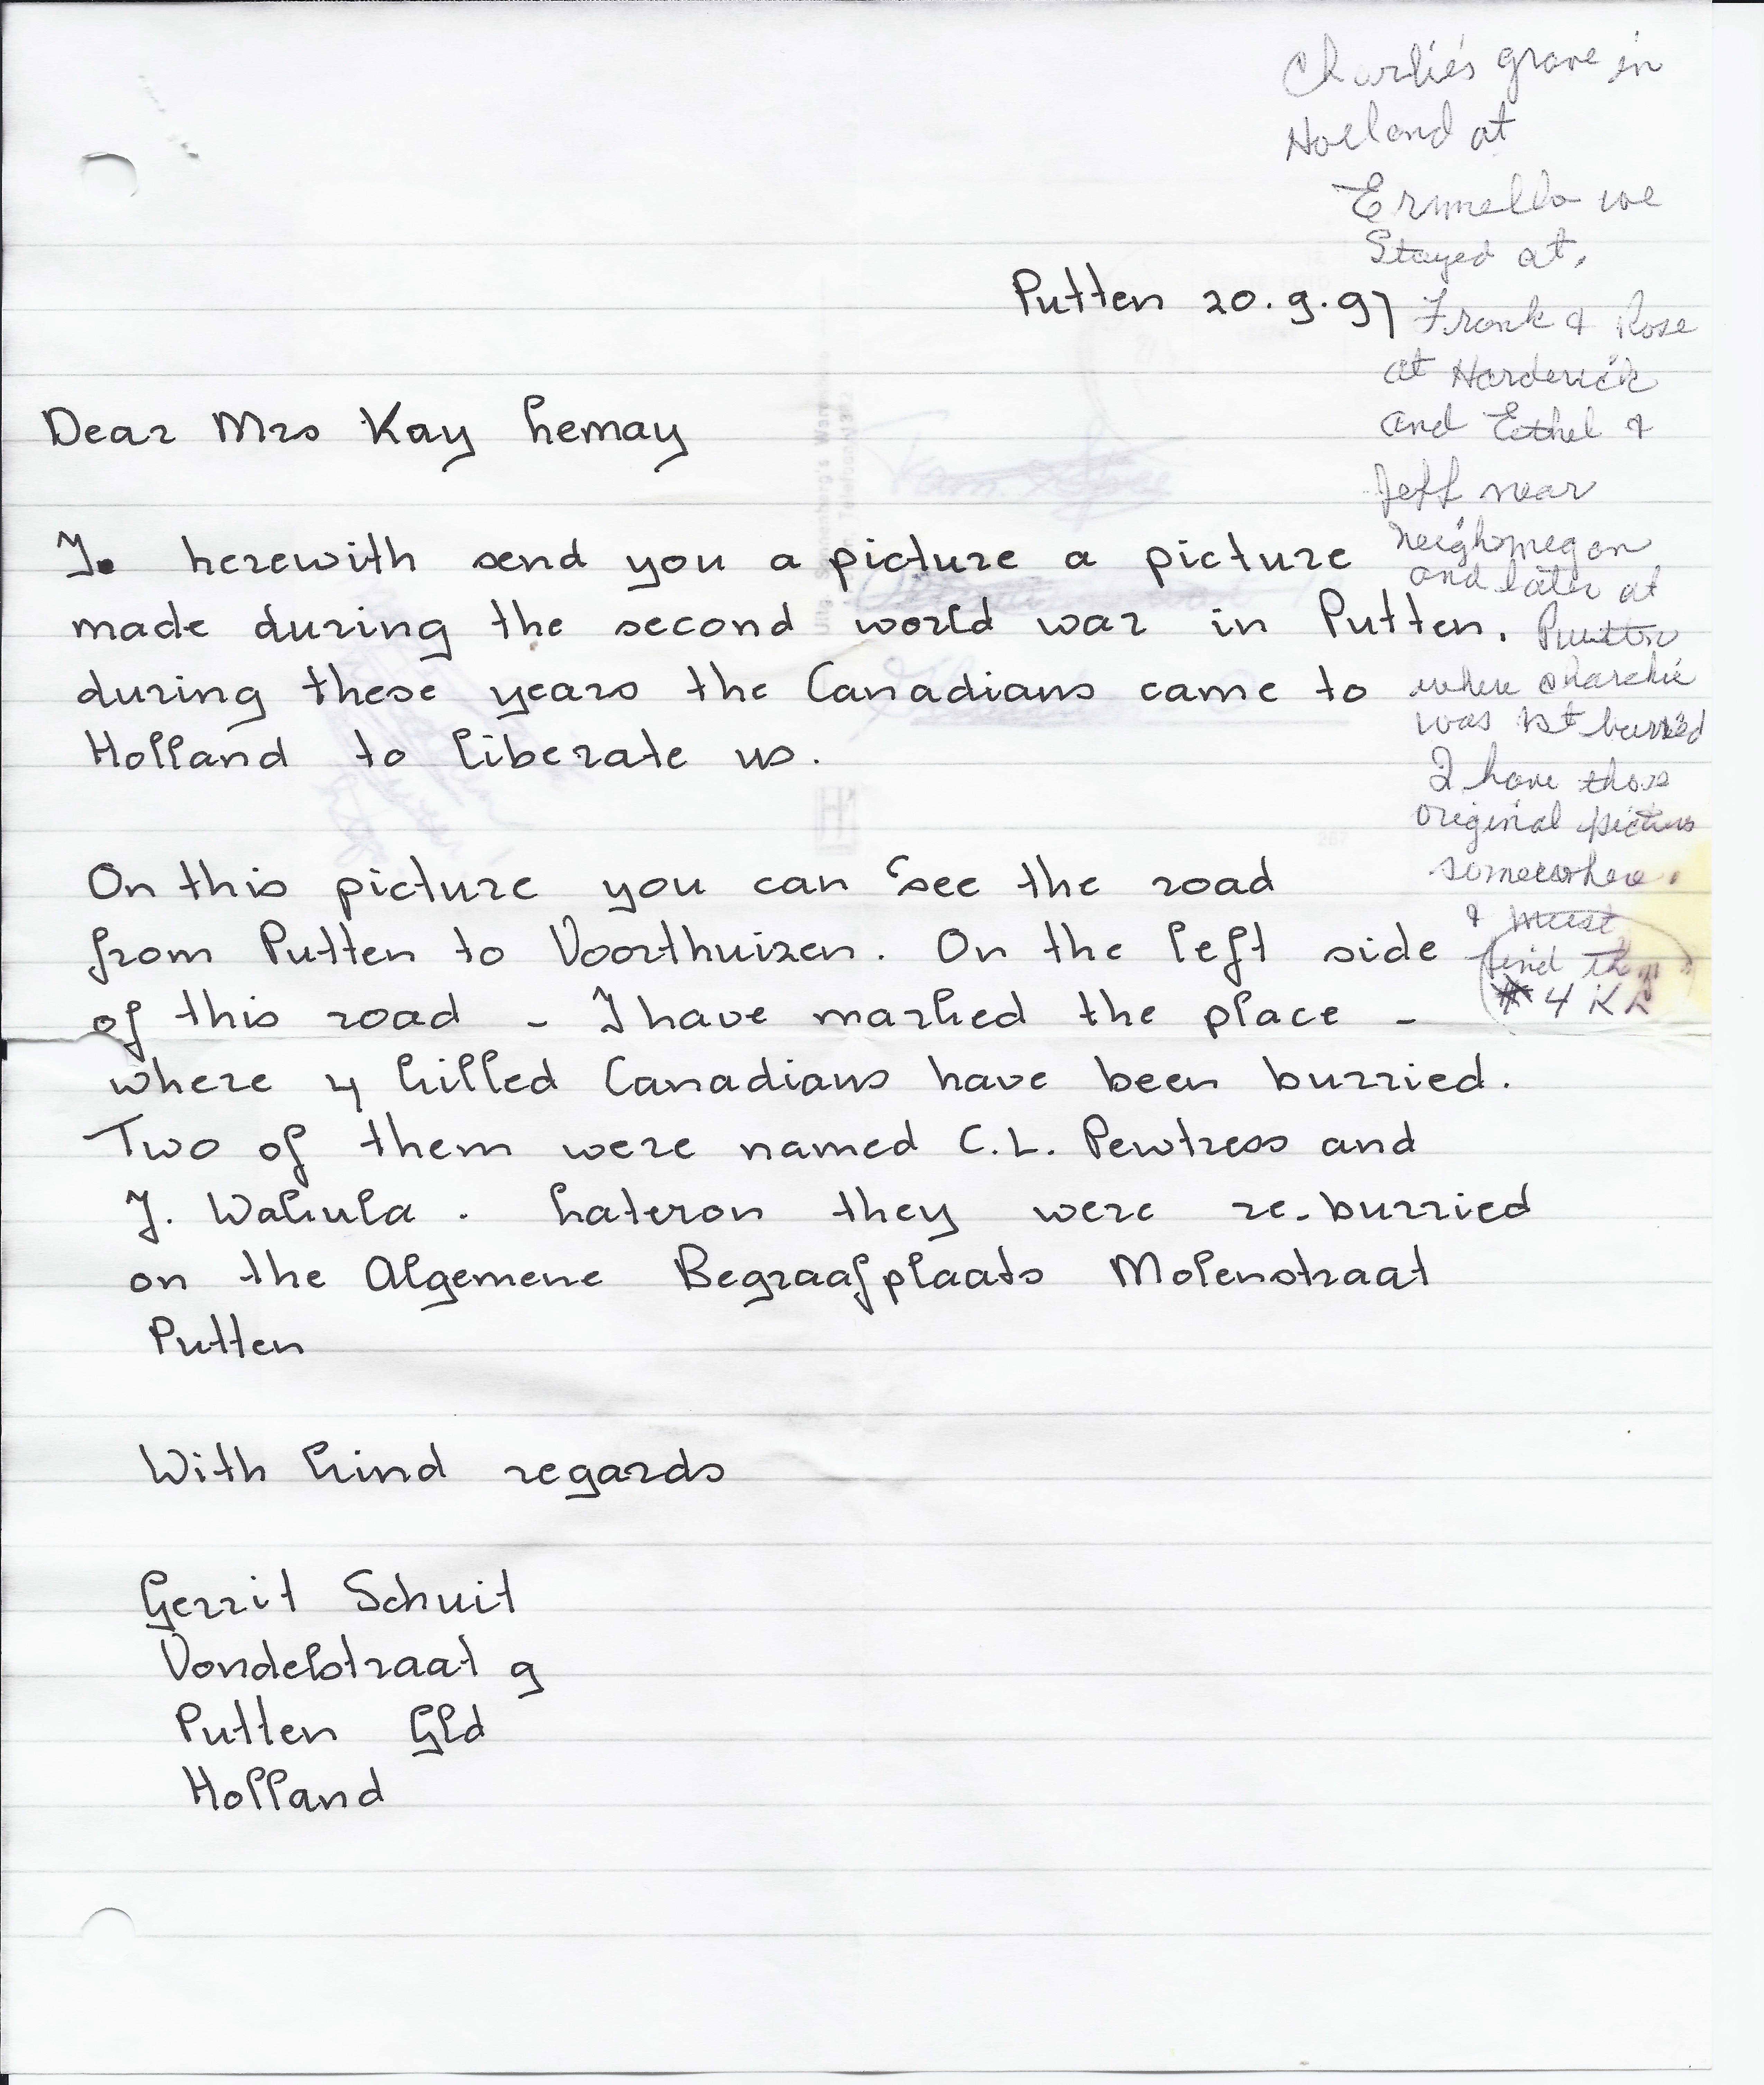 Charlie's grave in
Holland at
Ermello we
Stayed at,
Frank & Rose
at Harderick
and Ethel &
Jeff near
Neighmegan
and later at
Putten
where Charlie
was 1st burried
I have those
original pictures
somewhere.
& must
find them
4 KL
Putten 20.9.97
Dear Mrs Kay Lemay
I herewith send you a picture a picture
made during the second world war in Putten.
during these years the Canadians came to
Holland to liberate us.
On this picture you can see the road
from Putten to Voorthuizen. On the left side
of this road - I have marked the place -
where 4 killed Canadians have been burried.
Two of them were named C.L. Pewtress and
J. Wakula. Lateron they were re-burried
on the Algemene Begraafplaats Molenstraat
Putten
With kind regards
Gerrit Schuit
Vondelstraat 9
Putten Gld
Holland